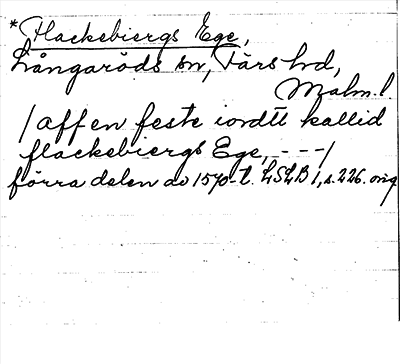 *Flackebiergs Ege,
Långaröds sn, Färs hd,
Malm. l.
/aff en feste iordtt kallid
flackebiergs Ege, - - -/
förra delen av 1570-t. LSLB 1, s. 226. orig